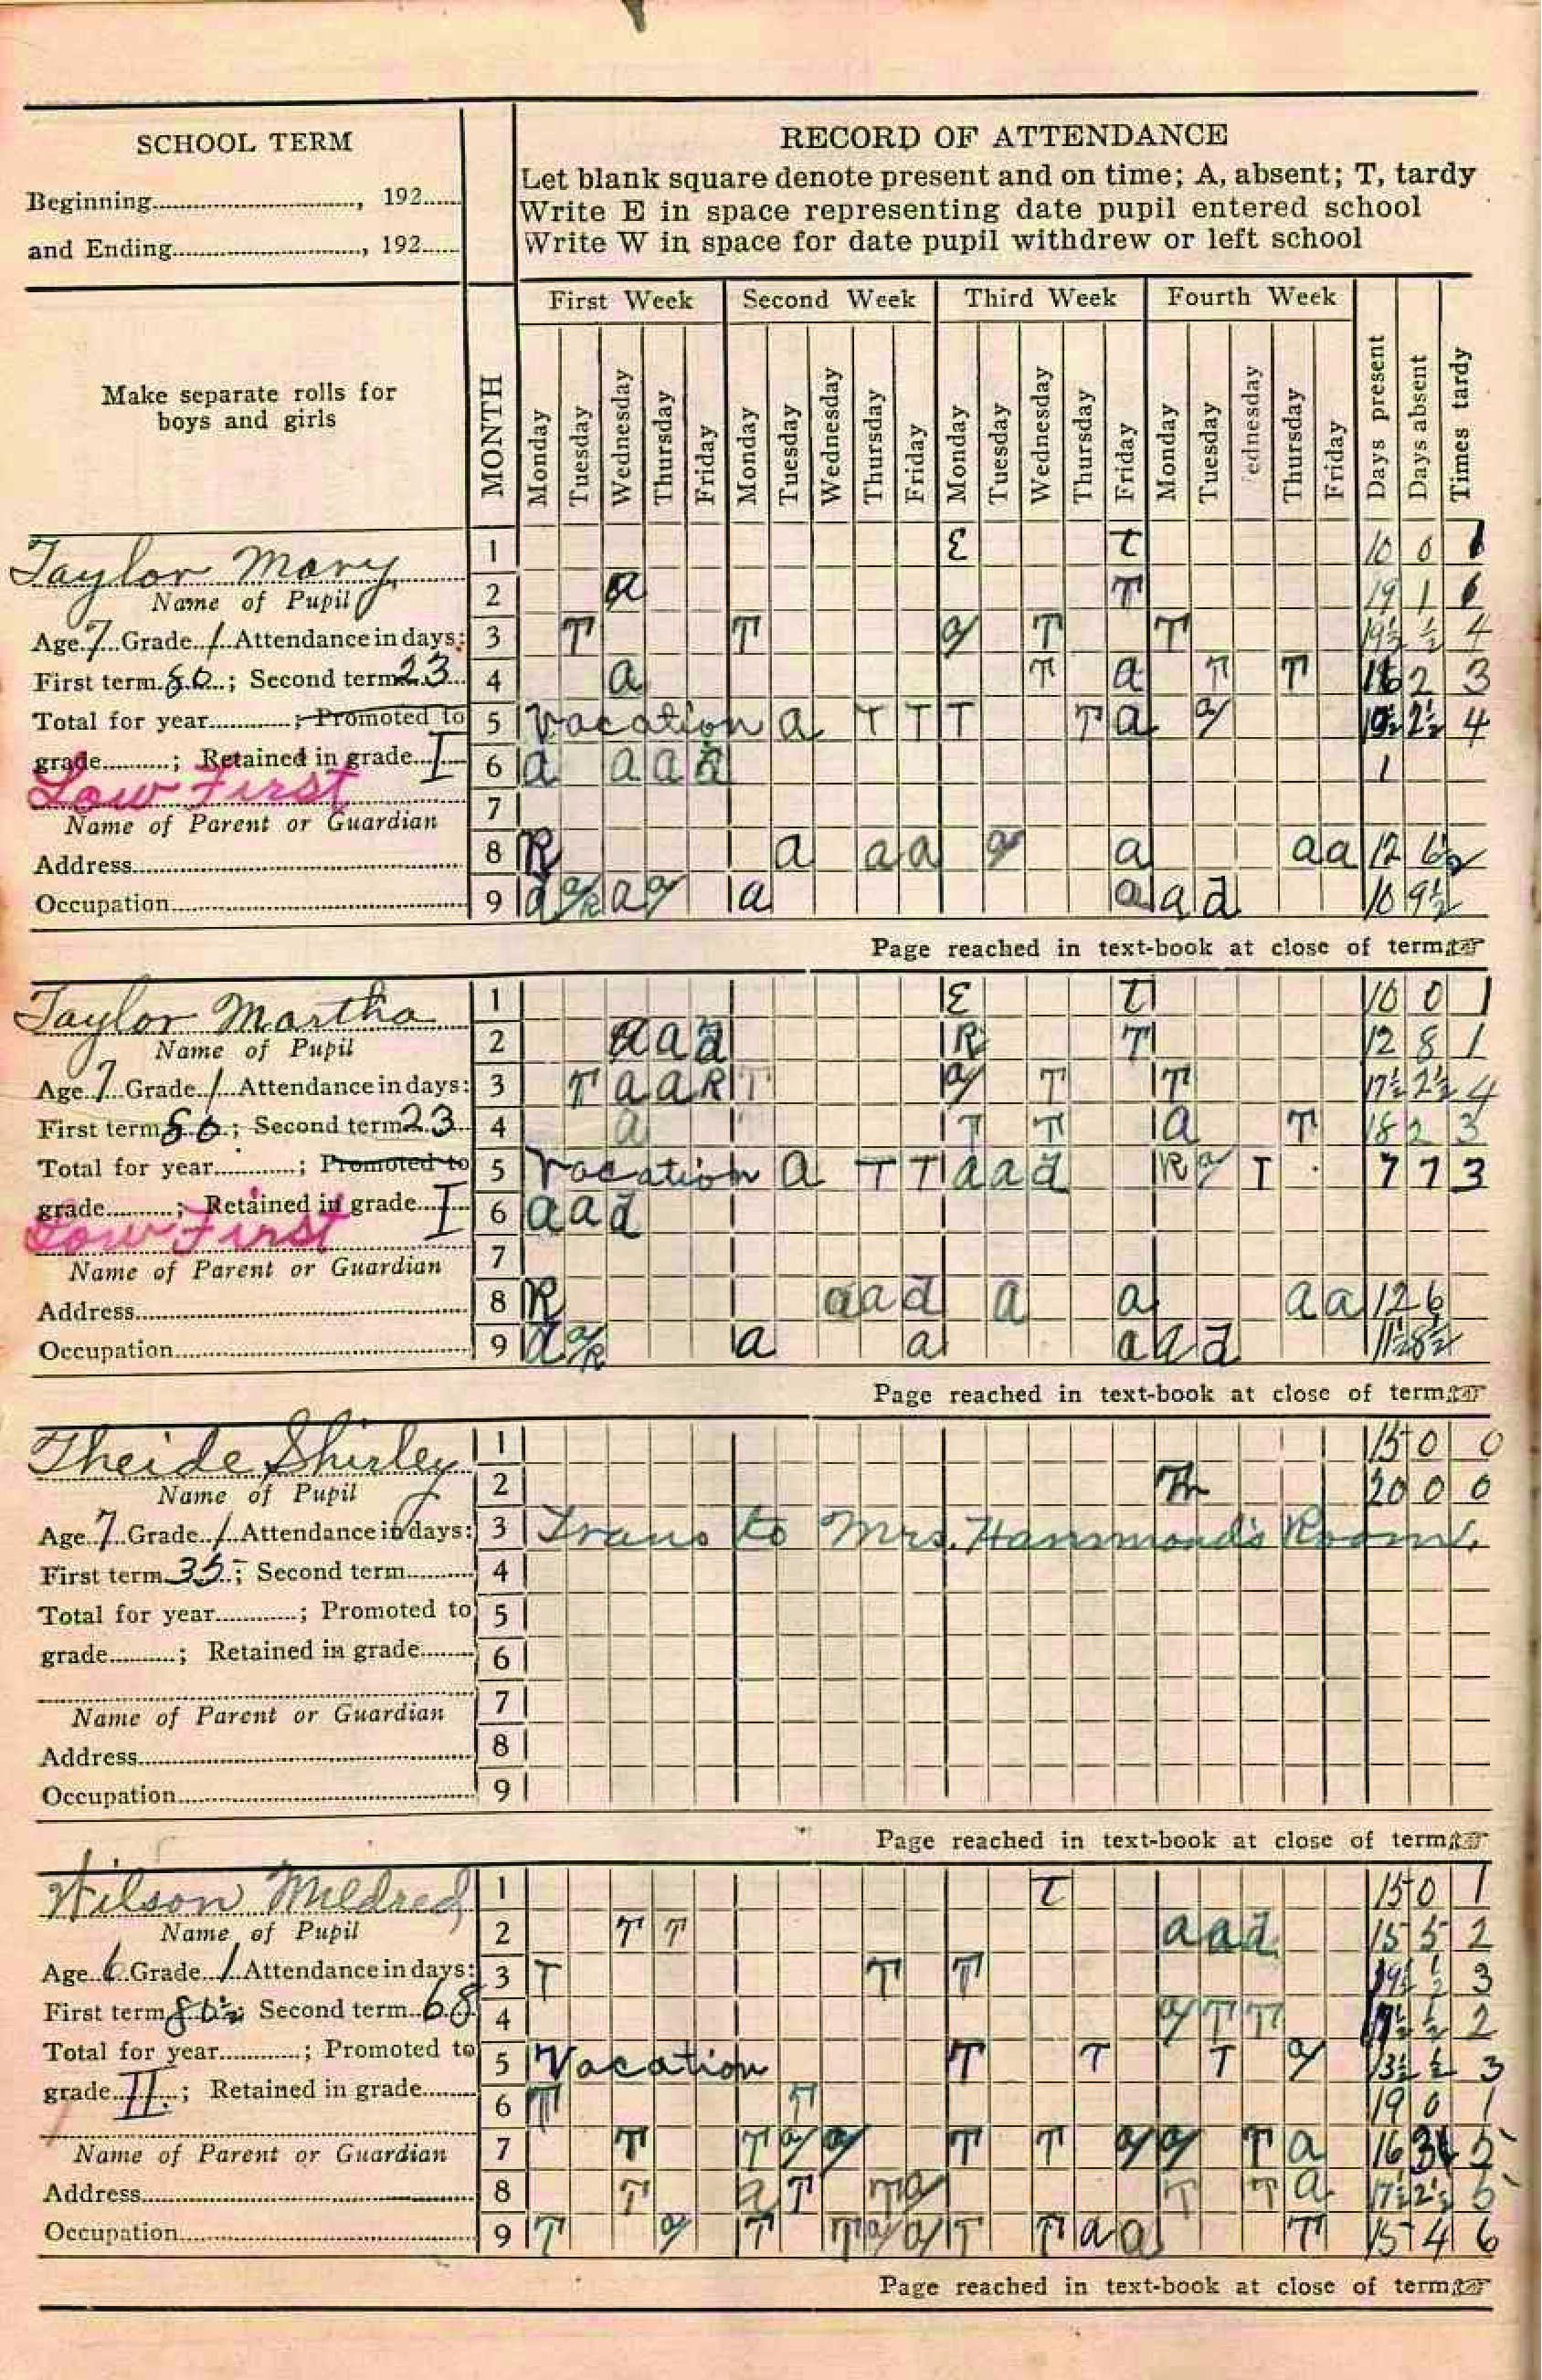 SCHOOL TERM
Beginning..............................., 192......
and Ending............................., 192......
RECORD OF ATTENDANCE
Let blank square denote present and on time; A, absent; T, tardy
Write E in space representing date pupil entered school
Write W in space for date pupil withdrew or left school
Make separate rolls for
boys and girls
MONTH
First Week Second Week Third Week Fourth Week
Monday Tuesday Wednesday Thursday Friday Monday Tuesday Wednesday Thursday Friday Monday Tuesday Wednesday Thursday Friday Monday Tuesday Wednesday Thursday Friday Days present Days absent Times tardy
Taylor Mary
Name of Pupil
Age 7 Grade 1 Attendance in days:
First term 80; Second term 23
Total for year............; Promoted to
grade..........; Retained in grade I
Low First
Name of Parent or Guardian
Address
Occupation
1 E t 10 0 1
2 a T 19 1 1
3 T T a/ T T 19½ ½ 4
4 a T a T T 18 2 3
5 Vacation a T T T T a a/ 2½ 4
6 a a a a 1
7
8 R a a a a/ a a a 12
9 a a/R a a/ a a a d 10 9½
Page reached in text-book at close of term
Taylor Martha
Name of Pupil
Age 7 Grade 1 Attendance in days:
First term 80; Second term 23
Total for year............; Promoted to
grade..........; Retained in grade I
Low First
Name of Parent or Guardian
Address
Occupation
1 E t 10 0 1
2 a a d R T 12 8 1
3 T a a R T a/ T T 17½ 2½ 4
4 a T T a T 18 2 3
5 Vacation a T T a a d R a/ T 7 7 3
6 a a d
7
8 R a a d a a a a 12 6
9 a a/R a a a a d 11½ 8½
Page reached in text-book at close of term
Theide Shirley
Name of Pupil
Age 7 Grade 1 Attendance in days:
First term 35; Second term
Total for year............; Promoted to
grade..........; Retained in grade
Name of Parent or Guardian
Address
Occupation
1 15 0 0
2 Tr 20 0 0
3 Trans to Mrs. Hammond's Room.
4
5
6
7
8
9
Page reached in text-book at close of term
Wilson Mildred
Name of Pupil
Age 6 Grade 1 Attendance in days:
First term 80½; Second term 68
Total for year............; Promoted to
grade II.; Retained in grade
Name of Parent or Guardian
Address
Occupation
1 t 15 0 1
2 T T a a d 15 5 2
3 T T T 19½ ½ 3
4 a/ T T 17½ ½ 2
5 Vacation T T T a/ 13½ ½ 3
6 T T 19 0 1
7 T T a/ a/ T T a/ a/ T a 16 3 5
8 T a T T a/ T T a 17½ 2½ 5
9 T a/ T T a/ a/ T T a a T 15 4 6
Page reached in text-book at close of term